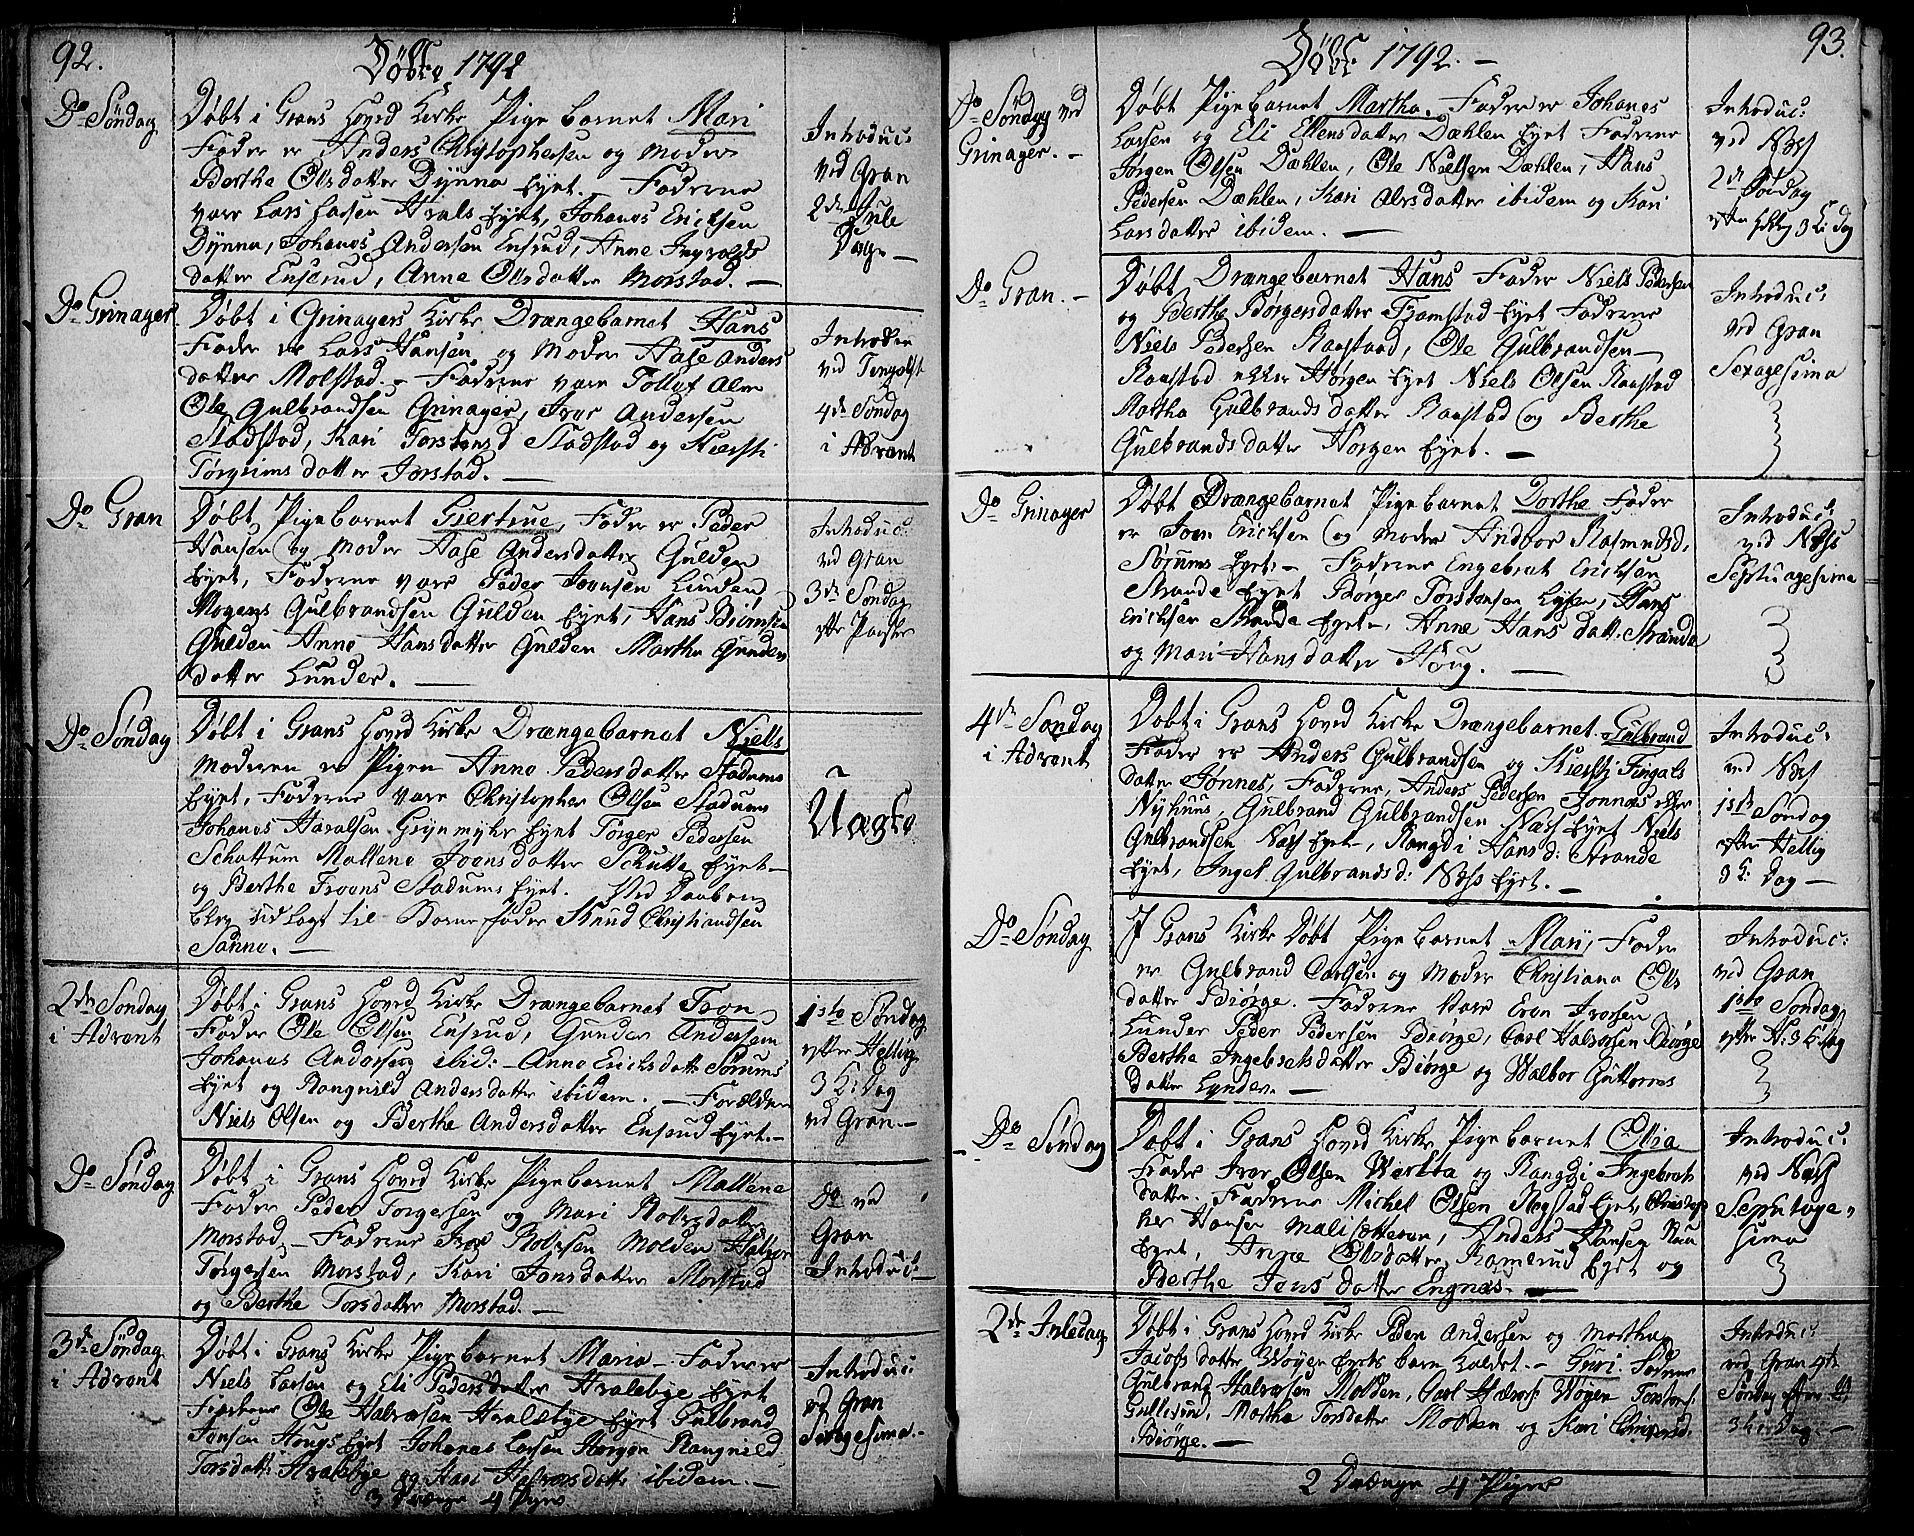 92.
Døbte 1792
Do Søndag
Døbt i Grans Hoved Kirke Pigebarnet Mari
Fader er Anders Christophersen og Moder
Berthe Olsdatter Dynna Eyet. Fadderne
vare Lars Larsen Hvals Eyet, Johanes Ericksen
Dynna, Johanes Andersen Ensrud, Anne Ingvolds
datter Ensrud, Anne Olsdatter Morstad. —
Introduc:
ved Gran
2den Jule
Dag —
Do Grinager
Døbt i Grinagers Kirke Drængebarnet Hans
Fader er Lars Hansen og Moder Aase Anders
datter Molstad. — Fadderne vare Tollef Alm
Ole Gulbrandsen Grinager, Iver Andersen
Stadstad, Kari Torstensd Stadstad og Kiersti
Torgrims datter Jorstad. —
Introduc
ved Tengelst
4de Søndag
i Advent
Do Gran
Døbt Pigebarnet Giertrue, Fader er Peder
Hansen og Moder Aase Andersdatter Gulden
Eyet, Fadderne vare Peder Iversen Lunden
Mogens Gulbrandsen Gulden Eyet, Hans Biørnsen
Gulden Anne Hansdatter Gulden Martha Gunders
datter Lunder. —
Introduc:
ved Gran
3de Søndag
efter Paaske
Do Søndag
Døbt i Grans Hoved Kirke Drængebarnet Niels
Moderen er Pigen Anne Pedersdatter Stadums
Eyet, Fadderne vare Christopher Olsen Stadum
Johanes Haralsen Grynmyhr Eyet Torger Pedersen
Schattum Mallene Joensdatter Schutte Eyet
og Berthe Troons Stadums Eyet. Ved Daaben
blev udlagt til Barnefader Knud Christiandsen
Sanne. —
Uægte
2den Søndag
i Advent
Døbt i Grans Hoved Kirke Drængebarnet Tron
Fader Ole Olsen Ensrud, Gunder Andersen
Johanes Andersen ibid: Anne Ericksdatter Sørums
Eyet og Rangnild Andersdatter ibidem. — Forældre
Niels Olsen og Berthe Andersdatter Ensrud Eyet.
1ste Søndag
efter Hellig
3 K: Dag
ved Gran.
Do Søndag
Døbt i Grans Hoved Kirke Pigebarnet Mallene
Fader Peder Torgersen og Mari datter
Morstad — Fadderne Iver Molden Halvor
Torgersen Morstad, Kari Jonsdatter Morstad
og Berthe Torsdatter Morstad. —
Do ved
Gran
Introduc:
3de Søndag
i Advent
Døbt i Grans Kirke Pigebarnet Maria — Fader er
Niels Larsen og Eli Pedersdatter Hvalebye Eyet
Ole Halvorsen Hvalebye Eyet Gulbrand
Jonsen Hougs Eyet Johanes Larsen Horgen Rangnild
Torsdatter Hvalebye og Kari Halvorsdatter ibidem. —
3 Drænge 4 Piger
Introduc:
ved Gran
Sexagesima.
93.
Døbt 1792. —
Do Søndag ved
Grinager. —
Døbt Pigebarnet Martha. Fader er Johanes
Larsen og Eli Ellensdatter Dæhlen Eyet Fadderne
Jørgen Olsen Dæhlen, Ole Nielsen Dæhlen, Hans
Pedersen Dæhlen, Kari Alvsdatter ibidem og Kari
Larsdatter ibidem. —
Introduc:
ved Næss
2den Søndag
efter Hellig 3 K: dag
Do Gran. —
Døbt Drængebarnet Hans Fader Niels Pedersen
og Berthe Børgersdatter Framstad Eyet Fadderne
Niels Pedersen Raastad, Ole Gulbrandsen
Raastad eller Horgen Eyet Niels Olsen Raastad
Martha Gulbrandsdatter Raastad og Berthe
Gulbrandsdatter Horgen Eyet. —
Introduc:
ved Gran
Sexagesima
Do Grinager
Døbt Drængebarnet Pigebarnet Dorthe Fader
er Joen Ericksen og Moder Andbor Rasmusd.
Sørums Eyet. — Fadderne Engebret Ericksen
Strande Eyet Børger Torstensen Lysen, Hans
Ericksen Strande Eyet, Anne Hansdatt. Strande
og Mari Hansdatter Houg. —
Introduc:
ved Næss
Septuagesima
4de Søndag
i Advent
Døbt i Grans Hoved Kirke Drængebarnet Gulbrand
Fader er Anders Gulbrandsen og Kiersti Fingals
datter Jønnes, Fadderne, Anders Pedersen Jonnes eller
Nyhuus, Gulbrand Gulbrandsen Næss Eyet Niels
Gulbrandsen Næss Eyet, Rangdi Hans d: Strande
Eyet, Ingel Gulbrandsd: Næss Eyet. —
Introduc:
ved Næss
1ste Søndag
efter Hellig
3 K: Dag —
Do Søndag
I Grans Kirke Døbt Pigebarnet Mari, Fader
er Gulbrand Carlsen og Moder Christiana Ols
datter Biørge. Fadderne vare Even Iversen
Lunder Peder Pedersen Biørge, Carl Halvorsen Biørge
Berthe Ingebretsdatter Biørge og Walbor Guttorms
datter Lynder. —
Introduc:
ved Gran
1ste Søndag
efter H: 3 K: dag
Do Søndag
Døbt i Grans Hoved Kirke Pigebarnet Ellia
Fader Iver Olsen Werkta og Rangdi Ingebreth
datter. Fadderne Michel Olsen Rogstad Eyet, Christop
her Hansen, Anders Hansen Rau
Eyet, Anne Olsdatter Ramerud Eyet og
Berthe Jensdatter Engnæs. —
Introduc:
ved Næss
Septuage,,
sima
2de Juledag
Døbt i Grans Hoved Kirke Peder Andersen og Martha
Jacobsdatter Woyen Eyets barn kaldet. — Guri. Fadderne
Gulbrand Halvorsen Molden, Carl Halvors: Woyen Torstens:
Gullerud, Martha Torsdatter Molden og Kari Christensd.
Biørge. —
2 Drænge 4 Piger
Introduc:
ved Gran 4de
Søndag efter H
3 K: Dag. —